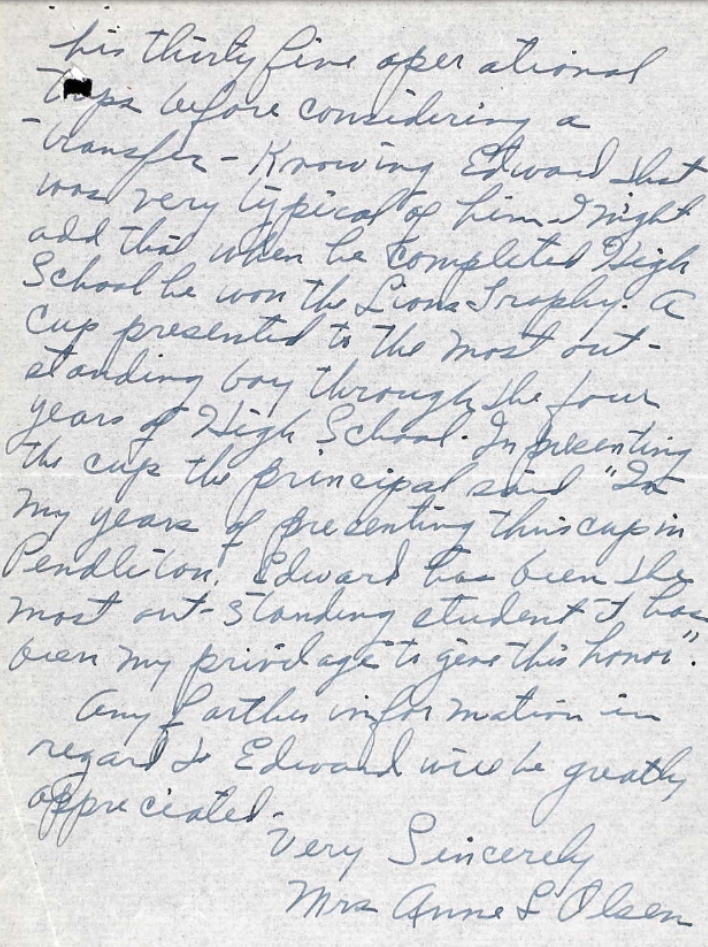 his thirty five oper ational
trips before considering a
transfer - Knowing Edward that
was very typical of him I might
add that when he completed High
School he won the Lions Trophy. A
cup presented to the most out-
standing boy through the four
years of High School. In presenting
the cup the principal said "In
my years of presenting this cup in
Pendleton, Edward has been the
most out-standing student it has
been my privilage to give this honor".
Any farther information in
regard to Edward will be greatly
appreciated.
Very Sincerely
Mrs Anne L Olsen